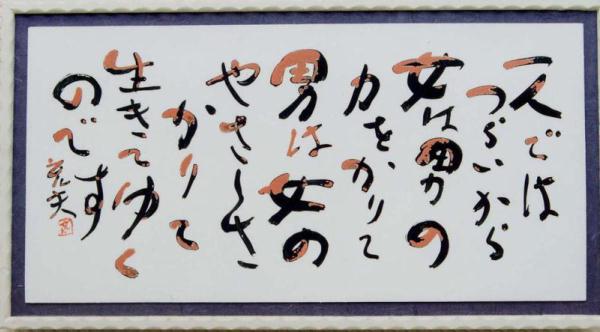 一人では
つらいから
女は男の
力をかりて
男は女の
やさしさ
かりて
生きてゆく
のです